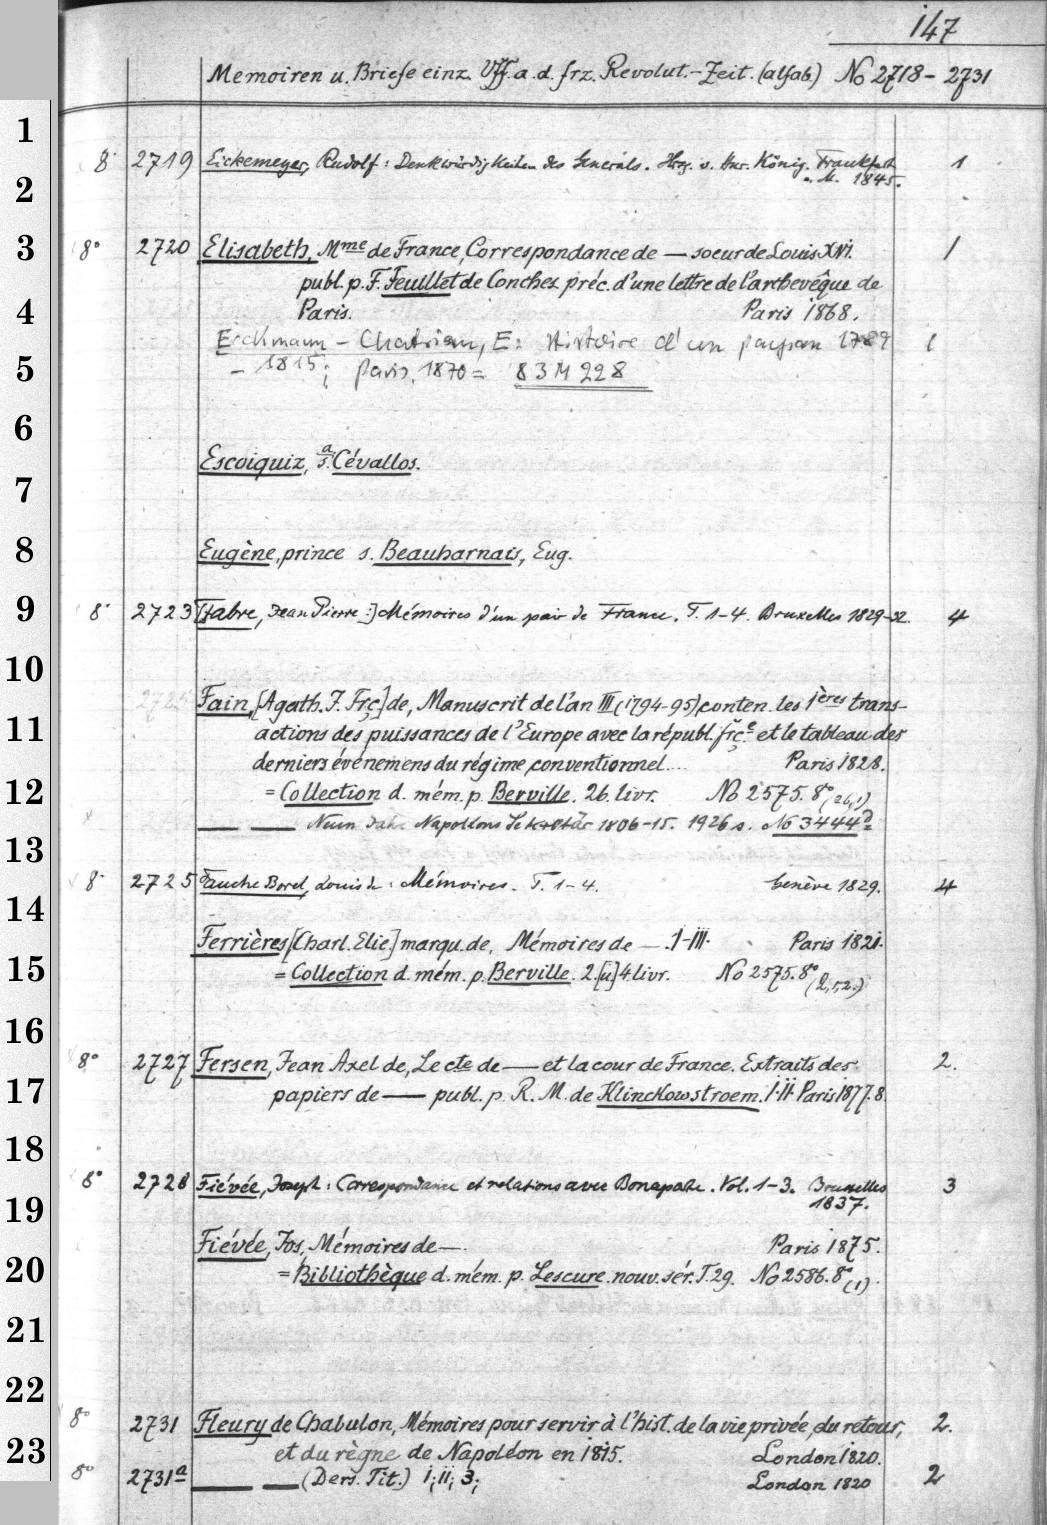 147
Memoiren u. Briefe einz. Vff. a. d. frz. Revolut.-Zeit. (alfab.) No 2718-2731
1
8° 2719 Eickemeyer, Rudolf: Denkwürdigkeiten des Generals. Hrsg. v. Hnr. König. Frankfurt 1
a. M. 1845.
2
3
8° 2720 Elisabeth, Mme de France, Correspondance de — soeur de Louis XVI. 1
publ. p. F. Feuillet de Conches préc. d'une lettre de l'archevêque de
4
Paris. Paris 1868.
Erckmann-Chatrian, E: Histoire d'un paysan 1789 1
5
- 1815; Paris, 1870 = 83 M 228
6
Escoiquiz, s. a Cévallos.
7
8
Eugène, prince s. Beauharnais, Eug.
9
8° 2723 [Fabre, Jean Pierre:] Mémoires d'un pair de France. T. 1-4. Bruxelles 1829-32. 4
10
2725 Fain, [Agath. J. Frç] de, Manuscrit de l'an III (1794-95) conten. les 1ères trans-
11
actions des puissances de l'Europe avec la républ. frçe et le tableau des
derniers événemens du régime conventionnel.... Paris 1828.
12
= Collection d. mém. p. Berville. 26. livr. No 2575. 8° (26,1)
— — Neun Jahre Napoleons Sekretär 1806-15. 1926 s. No 3444d
13
8° 2725 Fauche Borel, Louis de: Mémoires. T. 1-4. Genève 1829. 4
14
Ferrières [Charl. Elie] marqu. de, Mémoires de — . I-III. Paris 1821.
15
= Collection d. mém. p. Berville. 2. [u] 4 livr. No 2575. 8° (2,1,2.)
16
8° 2727 Fersen, Jean Axel de, Le cte de — et la cour de France. Extraits des 2.
17
papiers de — publ. p. R. M. de Klinckowstroem. I-II. Paris 1877.8.
18
8° 2728 Fiévée, Joseph: Correspondance et relations avec Bonaparte. Vol. 1-3. Bruxelles 3
19
1837.
Fiévée, Jos., Mémoires de —. Paris 1875.
20
= Bibliothèque d. mém. p. Lescure. nouv. sér. T. 29. No 2586. 8° (1).
21
22
8° 2731 Fleury de Chabulon, Mémoires pour servir à l'hist. de la vie privée, du retour, 2.
23
et du règne de Napoléon en 1815. London 1820.
8° 2731a — — (Ders. Tit.) I; II; 3; London 1820 2